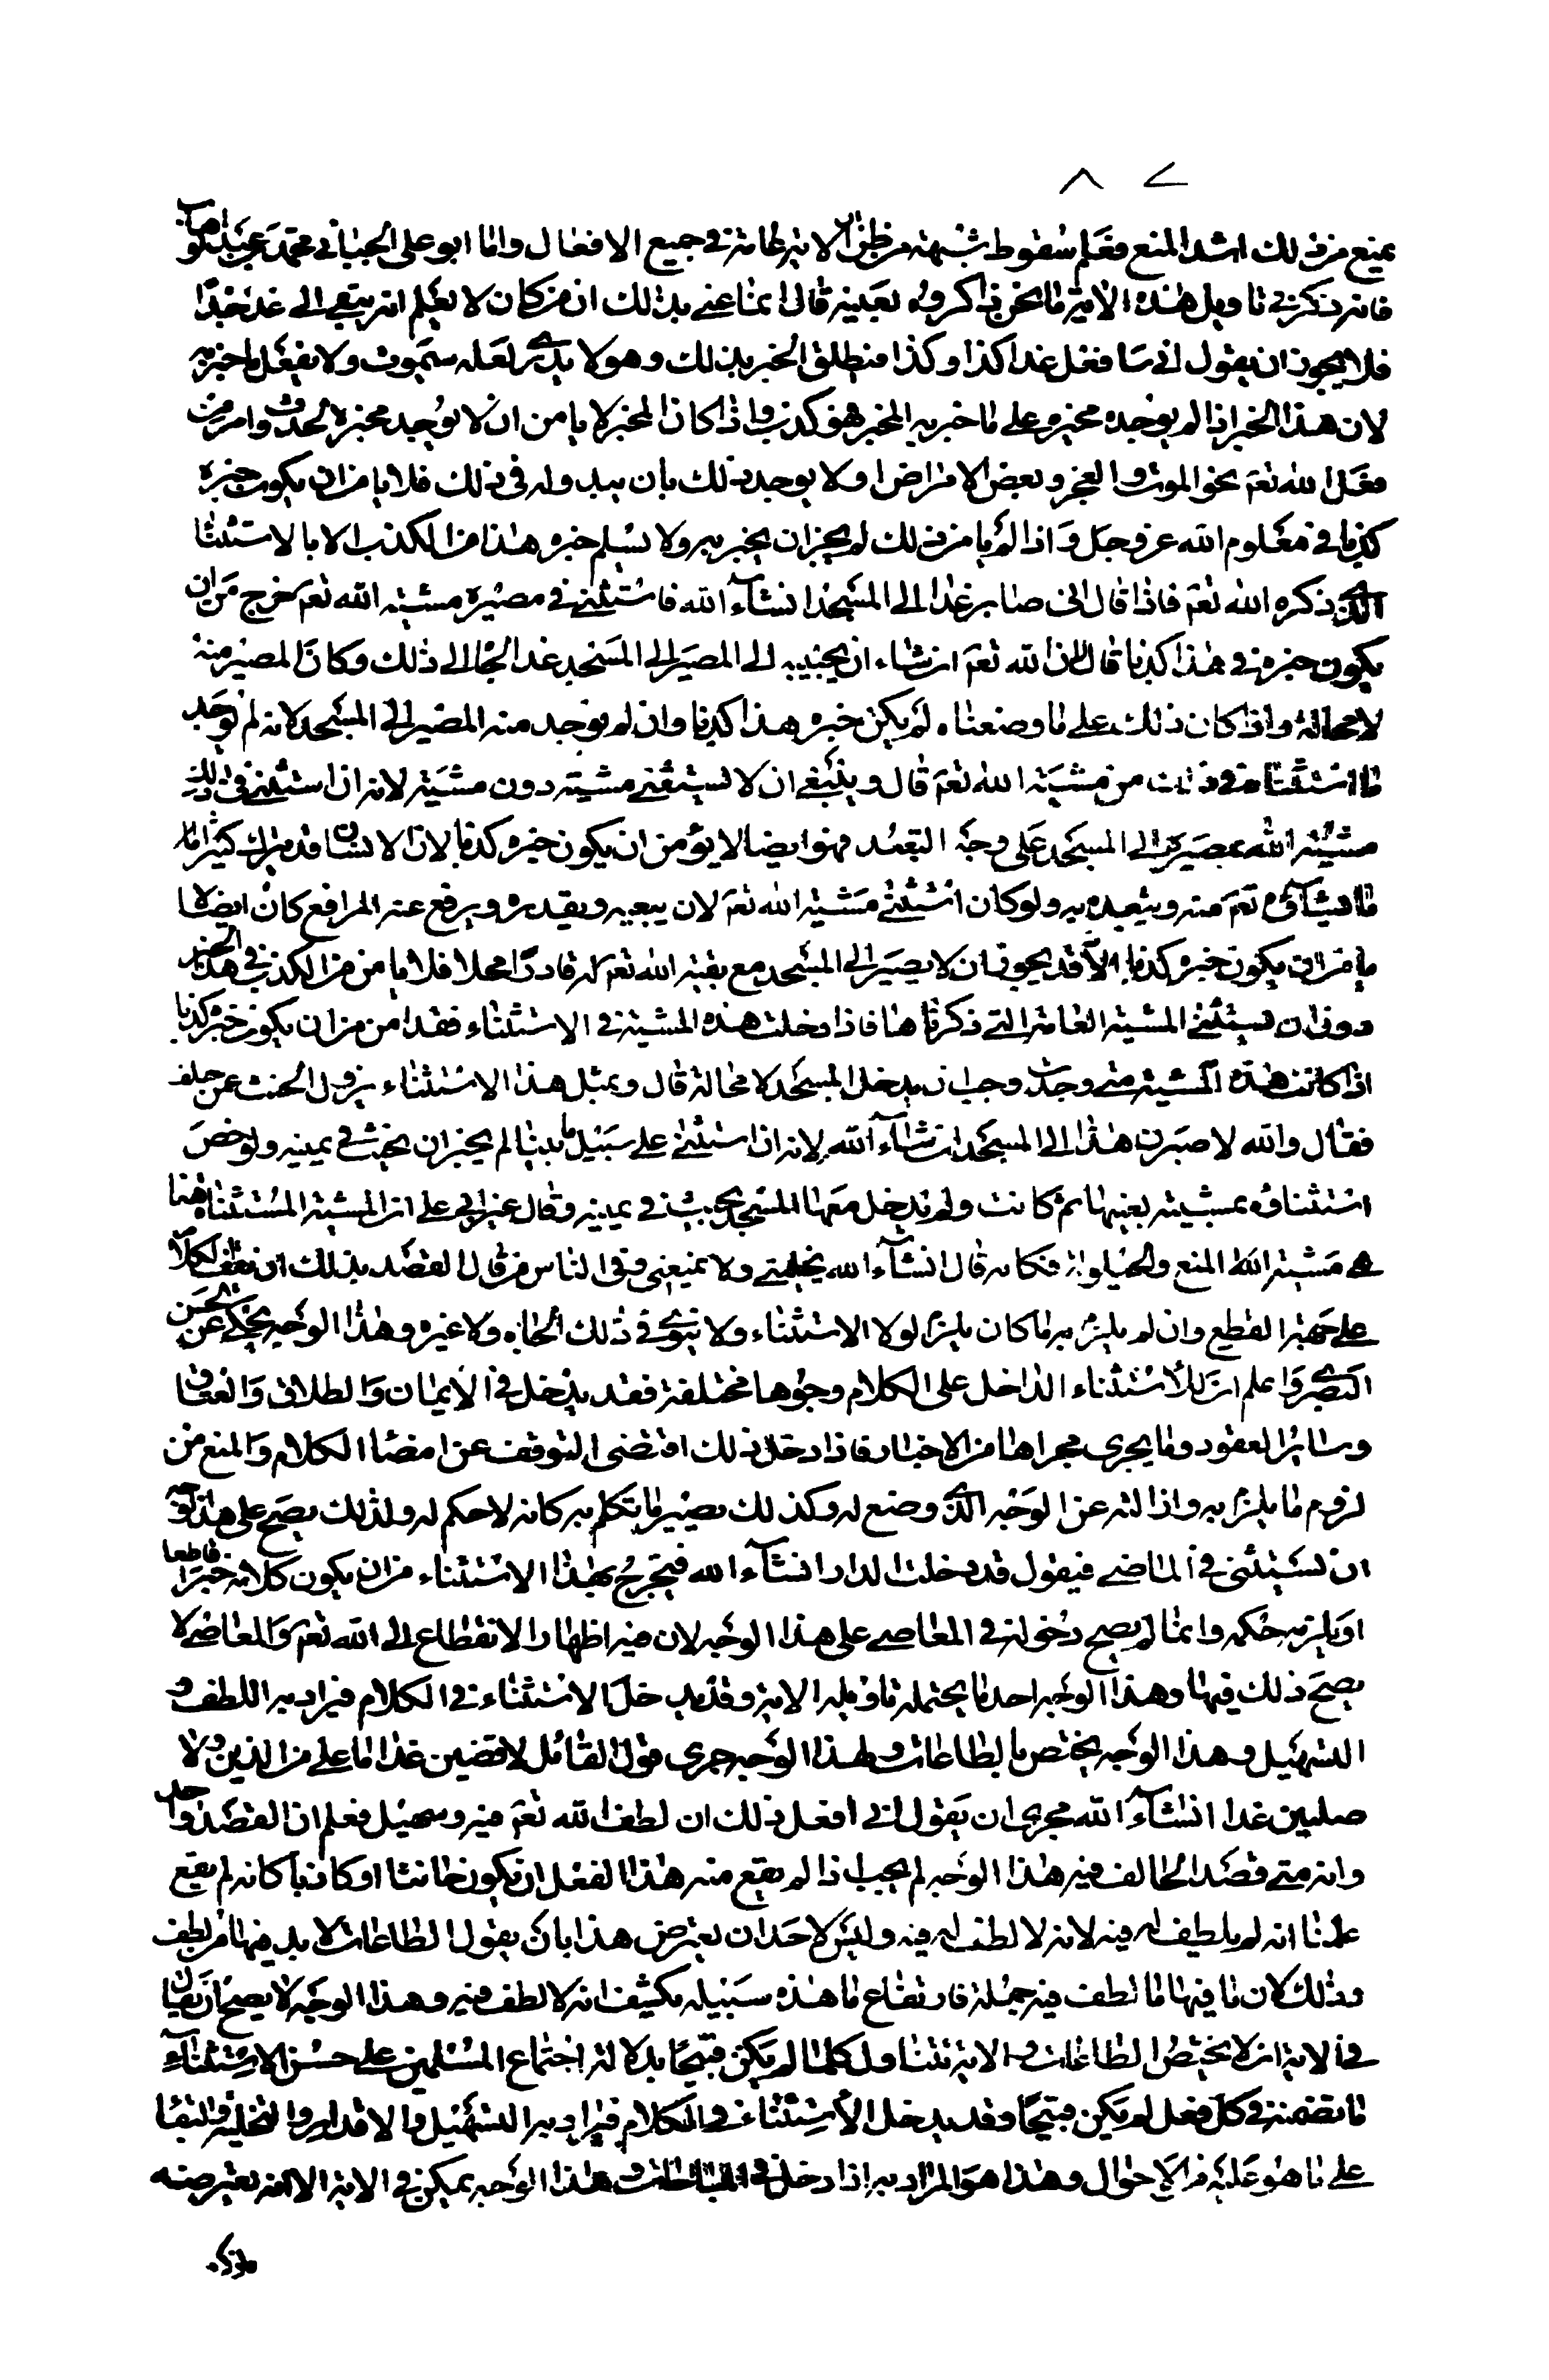 ٧ ٨
يمنع من ذلك اشد المنع فعلم سقوط شبهة من ظن ان الاية عامة في جميع الافعال واما ابو علي الجبائي محمد بن عبد الوهاب
فانه ذكر في تاويل هذه الاية ما نحن ذاكروه بعينه قال انما عني بذلك ان من كان لا يعلم انه يبقى الى غد حيا
فلا يجوز ان يقول اني سافعل غدا كذا وكذا فيطلق الخبر بذلك وهو لا يدري لعله سيموت ولا يفعل ما اخبر به
لان هذا الخبر اذا لم يوجد مخبره على ما اخبر به المخبر فهو كذب واذا كان المخبر لا يامن ان لا يوجد مخبره لحدوث امر من
فعل الله تعم نحو الموت والعجز وبعض الامراض او لا يوجد ذلك بان يبدو له في ذلك فلا يامن ان يكون خبره
كذبا في معلوم الله عز وجل واذا لم يامن ذلك لم يجز ان يخبر به ولا يسلم خبره هذا من الكذب الا بالاستثنا
الذي ذكره الله تعم فاذا قال اني صاير غدا الى المسجد انشاء الله فاستثنى في مصيره مشية الله تعم خرج من ان
يكون خبره في هذا كذبا قال لان الله تعم ان شاء ان يجنبه الى المصير الى المسجد غدا الجاه الى ذلك وكان المصير منه
لا محالة واذا كان ذلك على ما وصفناه لم يكن خبره هذا كذبا وان لم يوجد منه المصير الى المسجد لانه لم يوجد
ما استثناه في ذلك من مشية الله تعم قال وينبغي ان لا يستثني مشيته دون مشية لانه ان استثنى في ذلك
مشية الله بمصيره الى المسجد على وجه التعبد فهو ايضا لا يؤمن ان يكون خبره كذبا لان الانسان قد يترك كثيرا مما
ما يشآؤه تعم منه ويتعبده به ولو كان استثنى مشية الله تعم لان يبقيه ويقدره ويرفع عنه الموانع كان ايضا لا
يامن ان يكون خبره كذبا لانه قد يجوز ان لا يصير الى المسجد مع تبقية الله تعم له قادرا مخلا فلا يامن من الكذب في هذا الخبر
دون ان يستثني المشية العامة التي ذكرناها فاذا دخلت هذه المشية في الاستثناء فقد امن من ان يكون خبره كذبا
اذا كانت هذه المشية متى وجدت وجب ان يدخل المسجد لا محالة قال وبمثل هذا الاستثناء يزول الحنث عن حلف
فقال والله لاصيرن غدا الى المسجد ان شآء الله لانه ان استثنى على سبيل ما بينا لم يجز ان يحنث في يمينه ولو خص
استثناؤه بمشية بعينها ثم كانت ولم يدخل معها المسجد حنث في يمينه وقال غير ابي علي ان المشية المستثناة ههنا
هي مشية الله المنع والحيلولة فكانه قال انشآء الله يخليني ولا يمنعني وفي الناس من قال القصد بذلك ان يقف الكلام
على جهة القطع وان لم يلزم به ما كان يلزم لولا الاستثناء ولا ينوي في ذلك الجاء ولا غيره وهذا الوجه يحكى عن الحسن
البصري واعلم ان للاستثناء الداخل على الكلام وجوها مختلفة فقد يدخل في الايمان والطلاق والعتاق
وسائر العقود وما يجري مجراها من الاخبار فاذا دخل ذلك اقتضى التوقف عن امضاء الكلام والمنع من
لزوم ما يلزم به وازالته عن الوجه الذي وضع له وكذلك يصير ما يتكلم به كانه لا حكم له ولذلك يصح على هذا الوجه
ان يستثني في الماضي فيقول قد دخلت الدار انشآء الله فيخرج بهذا الاستثناء من ان يكون كلامه خبرا قاطعا
او يلزمه حكمه وانما لم يصح دخوله في المعاصي على هذا الوجه لان فيه اظهار الانقطاع الى الله تعم والمعاصي لا
يصح ذلك فيها وهذا الوجه احد ما يحتمله تاويله الاية وقد يدخل الاستثناء في الكلام فيراد به اللطف و
التسهيل وهذا الوجه يختص بالطاعات ولهذا الوجه جرى قول القائل لاقضين غدا ما علي من الدين ولا
صلين غدا انشآء الله مجرى ان يقول اني افعل ذلك ان لطف الله تعم فيه وسهله فعلم ان القصد واحد
وانه متى قصد الحالف فيه هذا الوجه لم يجب اذا لم يقع منه هذا الفعل ان يكون حانثا او كاذبا لانه لم يقع
علمنا انه لم يلطف له فيه لانه لا لطف له فيه وليس لاحد ان يعترض هذا بان يقول الطاعات لا بد فيها من لطف
وذلك لان فيها ما لا لطف فيه جملة فارتفاع ما هذه سبيله يكشف انه لا لطف فيه وهذا الوجه لا يصح ان يقال
في الاية انه لا يختص الطاعات والاية تتناول كلما لم يكن قبيحا بدلالة اجتماع المسلمين على حسن الاستثناء
ما تضمنته في كل فعل لم يكن قبيحا وقد يدخل الاستثناء في الكلام فيراد به التسهيل والاقدار والتخلية والبقا
على ما هو عليه من الاحوال وهذا هو المراد به اذا دخل في المباحات وهذا الوجه يمكن في الاية الا انه يعترضه